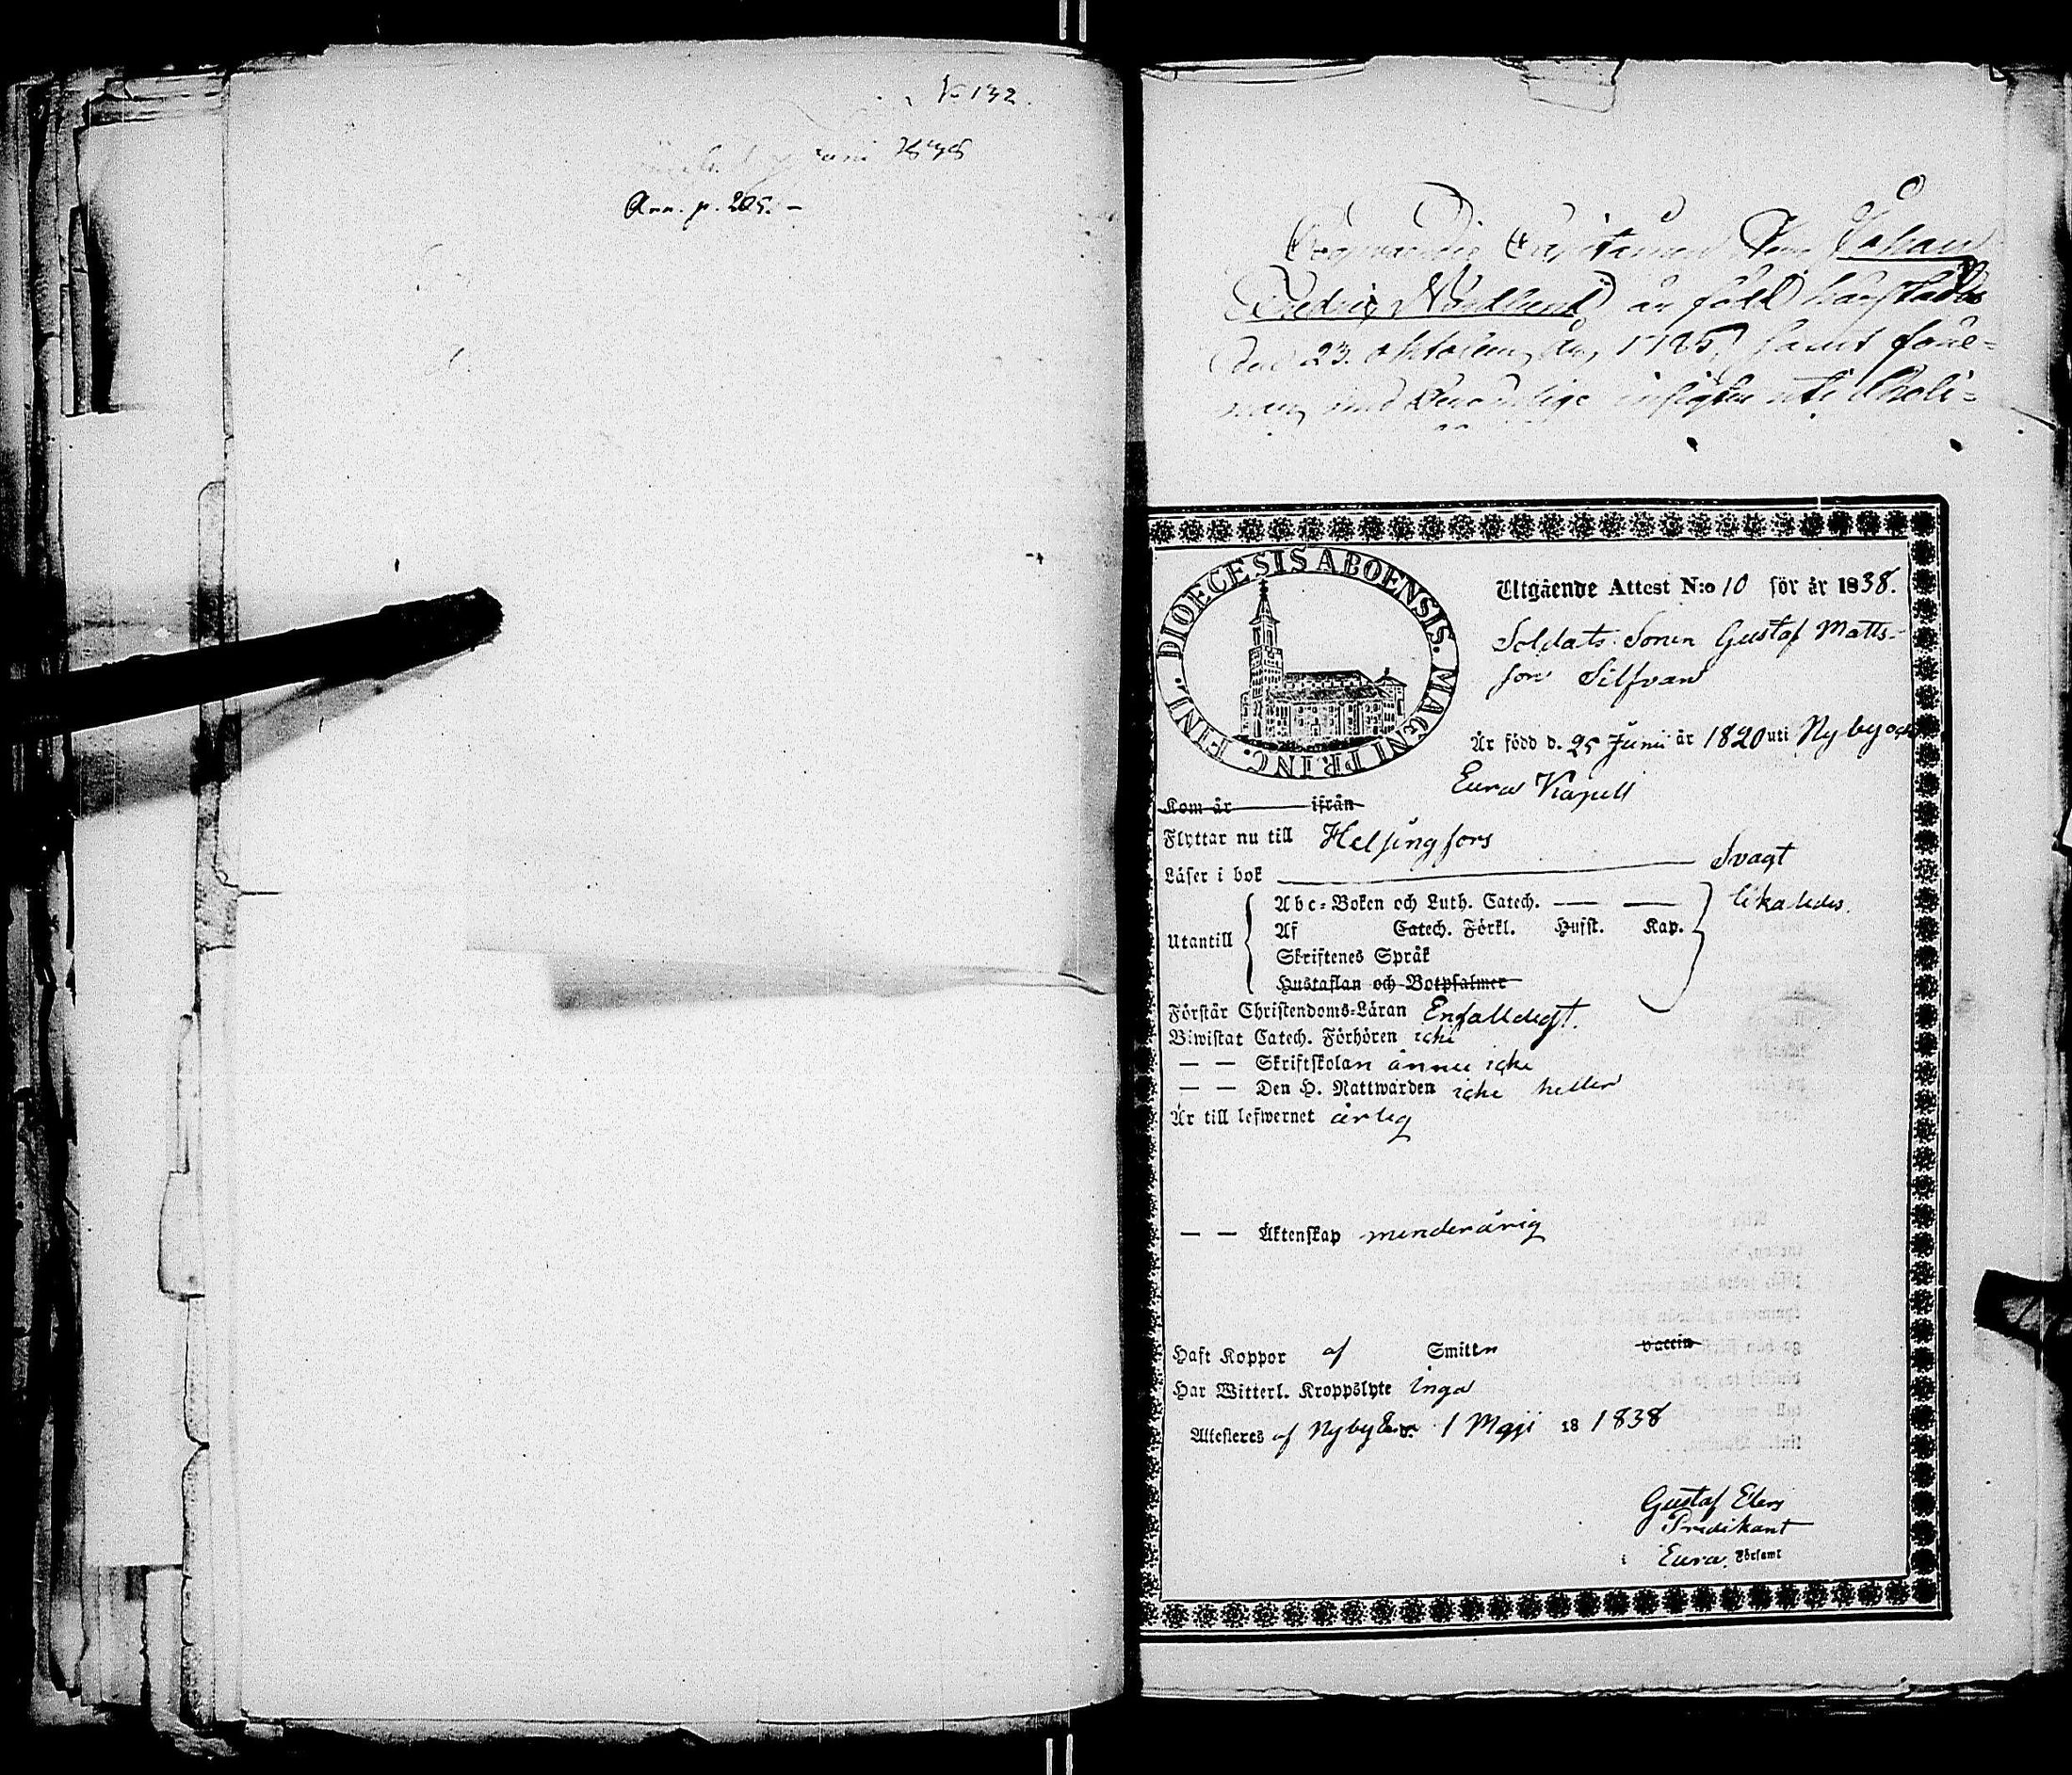 N 132.
Juni 1838
Ann. p. 205. –
Johan
Fredric Nordlund är född härstädes
den 23. 
med
DIOECESIS ABOENSIS. MAGNI PRINC. FINL.
Utgående Attest N:o 10 för år 1838.
Soldats Sonen Gustaf Matts-
son Silfvan
Är född d. 25 Junii år 1820 uti Nyby och
Eura Kapell
Kom år ifrån
Flyttar nu till Helsingfors
Läser i bok Svagt
Utantill
Abc-Boken och Luth. Catech. — — likaledes.
Af Catech. Förkl. Husst. Kap.
Skriftenes Språk
Hustaflan och Botpsalmer
Förstår Christendoms-Läran Enfalldigt.
Biwistat Catech. Förhören icke
— — Skriftskolan ännu icke
— — Den H. Nattwarden icke heller
Är till lefwernet ärlig
— — Äktenskap minderårig
Haft Koppor af Smitten vaccin
Har Witterl. Kroppslyte inga
Attesteres af Nyby Eura 1 Maji 18 1838
Gustaf Elers
Predikant
i Eura Församl